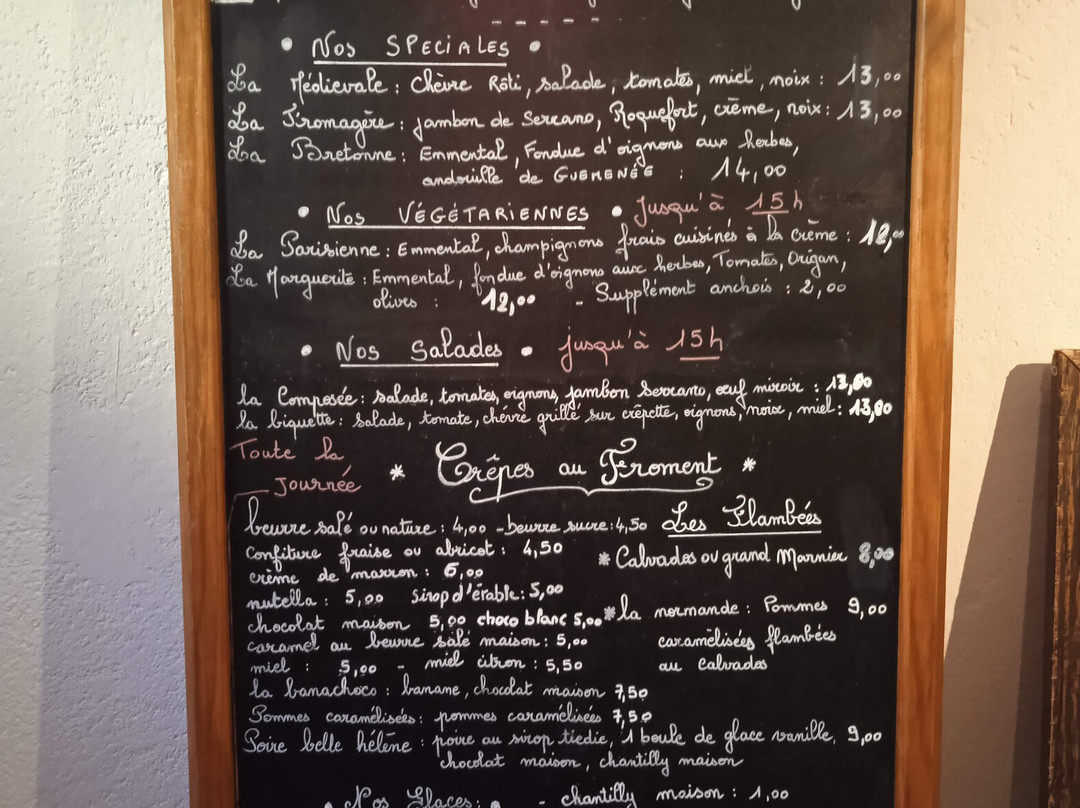 • Nos SPECIALES •
La Médievale : Chèvre Rôti, salade, tomates, miel, noix : 13,00
La Fromagère : jambon de Serrano, Roquefort, crème, noix : 13,00
La Bretonne : Emmental, Fondue d'oignons aux herbes,
andouille de GUEMENÉE : 14,00
• Nos VÉGÉTARIENNES • Jusqu'à 15h
La Parisienne : Emmental, champignons frais cuisinés à la crème : 12,00
La Marguerite : Emmental, fondue d'oignons aux herbes, Tomates, Origan,
olives : 12,00 - Supplément anchois : 2,00
• Nos Salades • jusqu'à 15h
la Composée : salade, tomates, oignons, jambon Serrano, œuf miroir : 13,00
la biquette : salade, tomate, chèvre grillé sur crêpette, oignons, noix, miel : 13,00
Toute la
Journée
* Crêpes au Froment *
beurre salé ou nature : 4,00 - beurre sucre : 4,50
Les Flambées
confiture fraise ou abricot : 4,50
* Calvados ou grand Marnier 8,00
crème de marron : 5,00
nutella : 5,00 Sirop d'érable : 5,00
chocolat maison 5,00 choco blanc 5,00
* la normande : Pommes 9,00
caramélisées flambées
au calvados
caramel au beurre salé maison : 5,00
miel : 5,00 - miel citron : 5,50
la banachoco : banane, chocolat maison 7,50
Pommes caramélisées : pommes caramélisées 7,50
Poire belle hélène : poire au sirop tiedie, 1 boule de glace vanille, 9,00
chocolat maison, chantilly maison
• Nos Glaces : • - chantilly maison : 1,00